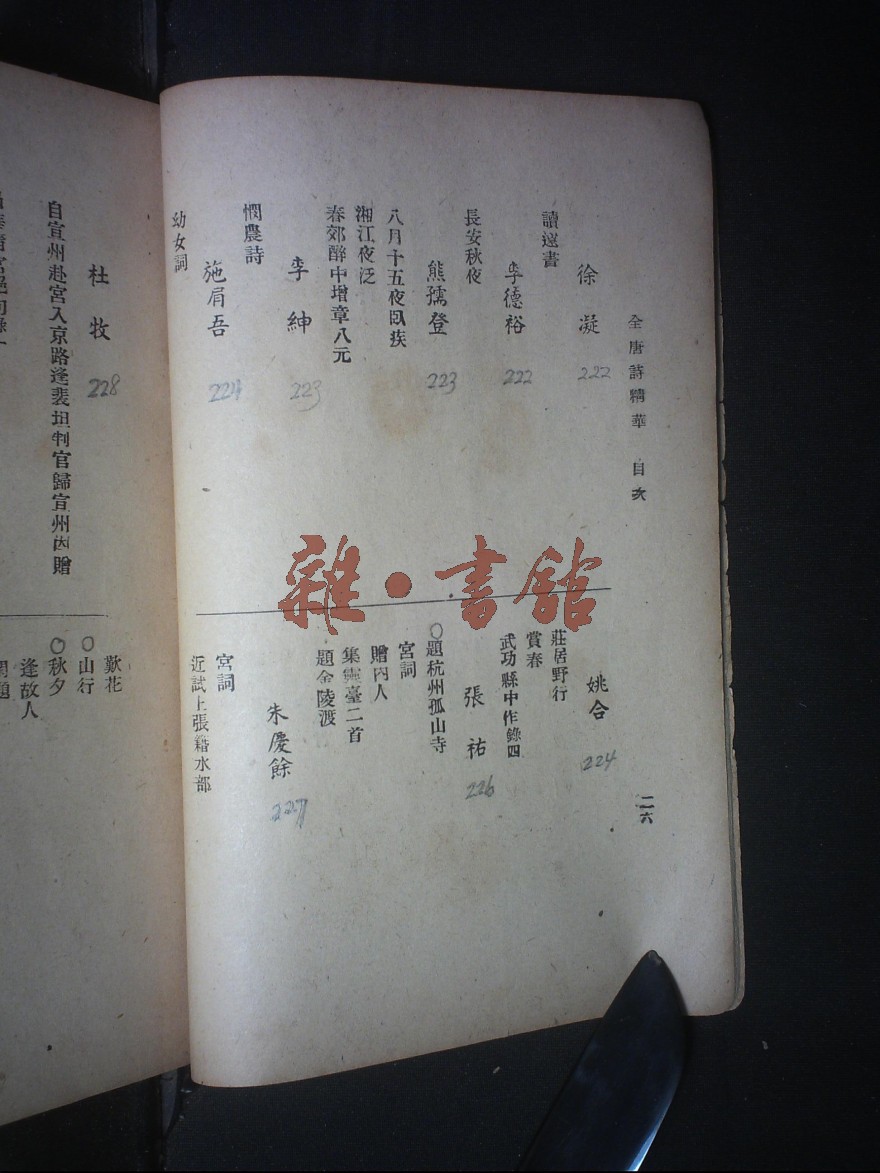 全唐詩精華 目次
二六
徐凝
222
讀遠書
李德裕
222
長安秋夜
熊孺登
223
八月十五夜臥疾
湘江夜泛
春郊醉中增章八元
李紳
223
憫農詩
施肩吾
224
幼女詞
姚合
224
莊居野行
賞春
武功縣中作錄四
張祜
226
○題杭州孤山寺
宮詞
贈內人
集靈臺二首
題金陵渡
朱慶餘
227
宮詞
近試上張籍水部
杜牧
228
自宣州赴官入京路逢裴坦判官歸宣州因贈
歎花
○山行
○秋夕
逢故人
雜·書館